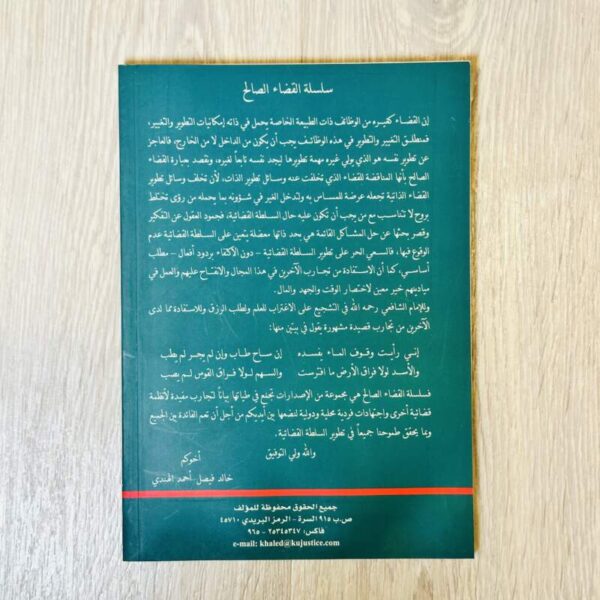 سلسلة القضاء الصالح
إن القضاء كغيره من الوظائف ذات الطبيعة الخاصة يحمل في ذاته إمكانيات التطوير والتغيير،
فمنطلق التغيير والتطوير في هذه الوظائف يجب أن يكون من الداخل لا من الخارج، فالعاجز
عن تطوير نفسه هو الذي يولي غيره مهمة تطويرها ليجد نفسه تابعاً لغيره، ونقصد بعبارة القضاء
الصالح بأنها المناقضة للقضاء الذي تخلفت عنه وسائل تطوير الذات، لأن تخلف وسائل تطوير
القضاء الذاتية تجعله عرضة للمساس به ولتدخل الغير في شؤونه بما يحمله من رؤى تختلط
بروح لا تتناسب مع من يجب أن تكون عليه حال السلطة القضائية، فجمود العقول عن التفكير
وقصر بحثها عن حل المشاكل القائمة هي بحد ذاتها معضلة يتعين على السلطة القضائية عدم
الوقوع فيها، فالسعي الحر على تطوير السلطة القضائية - دون الاكتفاء بردود أفعال - مطلب
أساسي، كما أن الاستفادة من تجارب الآخرين في هذا المجال والانفتاح عليهم والعمل في
ميادينهم خير معين لاختصار الوقت والجهد والمال.
وللإمام الشافعي رحمه الله في التشجيع على الاغتراب للعلم ولطلب الرزق وللاستفادة مما لدى
الآخرين من تجارب قصيدة مشهورة يقول في بيتين منها:
إنـي رأيـت وقـوف المـاء يفسده إن سـاح طـاب وإن لم يجـر لم يطب
والأسد لولا فراق الأرض ما افترست والسهم لـولا فـراق القوس لم يصب
فسلسلة القضاء الصالح هي مجموعة من الإصدارات تجمع في طياتها بياناً لتجارب مفيدة لأنظمة
قضائية أخرى واجتهادات فردية محلية ودولية لنضعها بين أيديكم من أجل أن تعم الفائدة بين الجميع
وبما يحقق طموحنا جميعاً في تطوير السلطة القضائية.
والله ولي التوفيق
أخوكم
خالد فيصل أحمد الهندي
جميع الحقوق محفوظة للمؤلف
ص.ب ٩١٥ السرة - الرمز البريدي ٤٥٧١٠
فاكس: ٢٥٣٤٥٣٤٧ - ٩٦٥
e-mail: khaled@kujustice.com